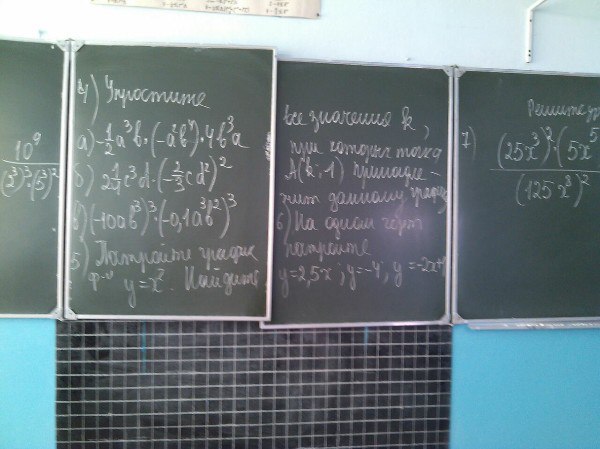 10⁹
(2³)³·(5³)²
4) Упростите
а) -½a³b·(-a²b⁴)·4b³a
б) 2¼c³d·(-⅔cd²)²
в) (-10ab³)³·(-0,1ab²)³
5) Постройте график
ф-и y=x². Найдите
все значения k,
при которых точка
A(k;1) принадле-
жит данному графику
6) На одном черт
постройте
y=2,5x; y=-4; y=-2x+
7) Решите ур
(25x³)²·(5x⁵
(125x³)²